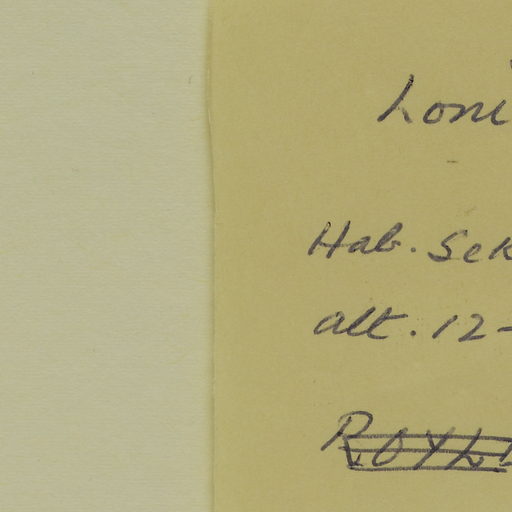 Loni
Hab. Sek
alt. 12-
ROYL